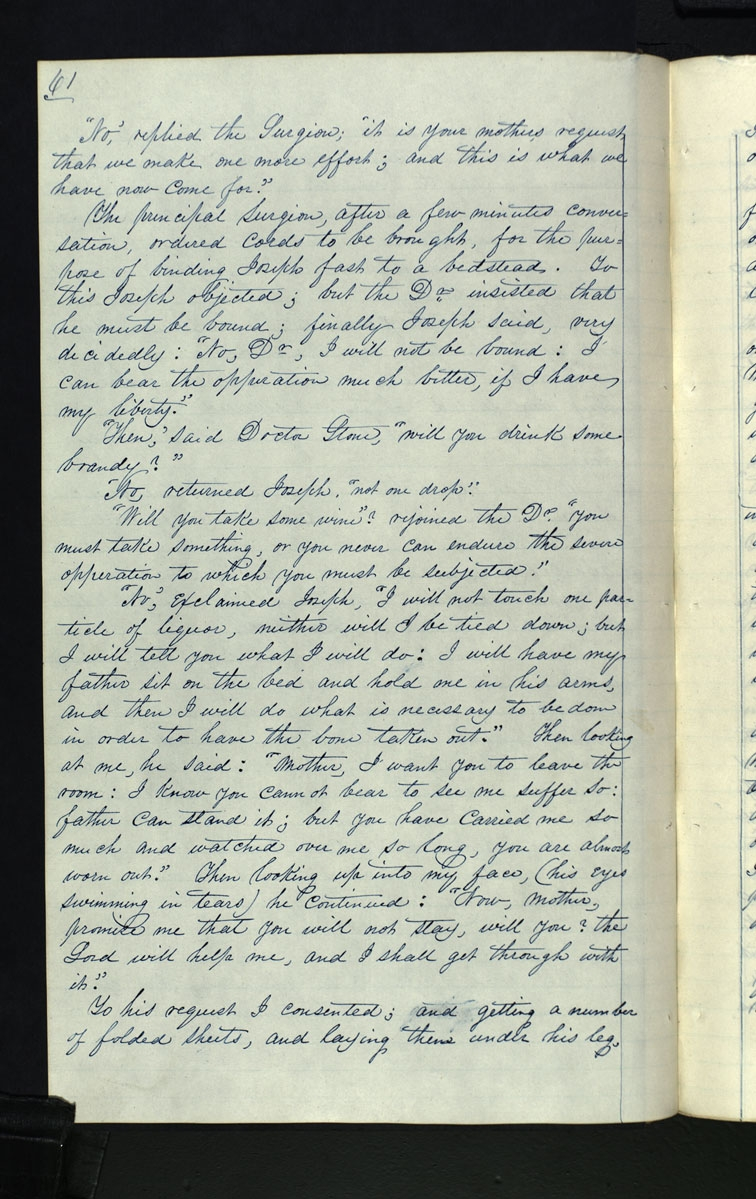 61
"No," replied the Surgion; "it is your mothers request
that we make one more effort; and this is what we
have now come for."
The principal Surgion, after a few minutes conver=
sation, ordered cords to be brought, for the pur=
pose of binding Joseph fast to a bedstead. To
this Joseph objected; but the Dr. insisted that
he must be bound; finally Joseph said, very
decidedly: "No, Dr., I will not be bound: I
can bear the opperation much better, if I have
my liberty."
"Then," said Doctor Stone, "will you drink some
brandy?"
"No, returned Joseph. "not one drop".
"Will you take some wine"? rejoined the Dr. "you
must take something, or you never can endure the severe
opperation to which you must be subjected."
"No", exclaimed Joseph, "I will not touch one par=
ticle of liquor, neither will I be tied down; but
I will tell you what I will do: I will have my
father sit on the bed and hold me in his arms,
and then I will do what is necessary to be done
in order to have the bone taken out." Then looking
at me, he said: "Mother, I want you to leave the
room: I know you cannot bear to see me suffer so:
father can stand it; but you have carried me so
much and watched over me so long, you are almost
worn out." Then looking up into my face, (his eyes
swimming in tears) he continued: "Now, Mother,
promise me that you will not stay, will you? the
Lord will help me, and I shall get through with
it."
To his request I consented; and getting a number
of folded sheets, and laying them under his leg,